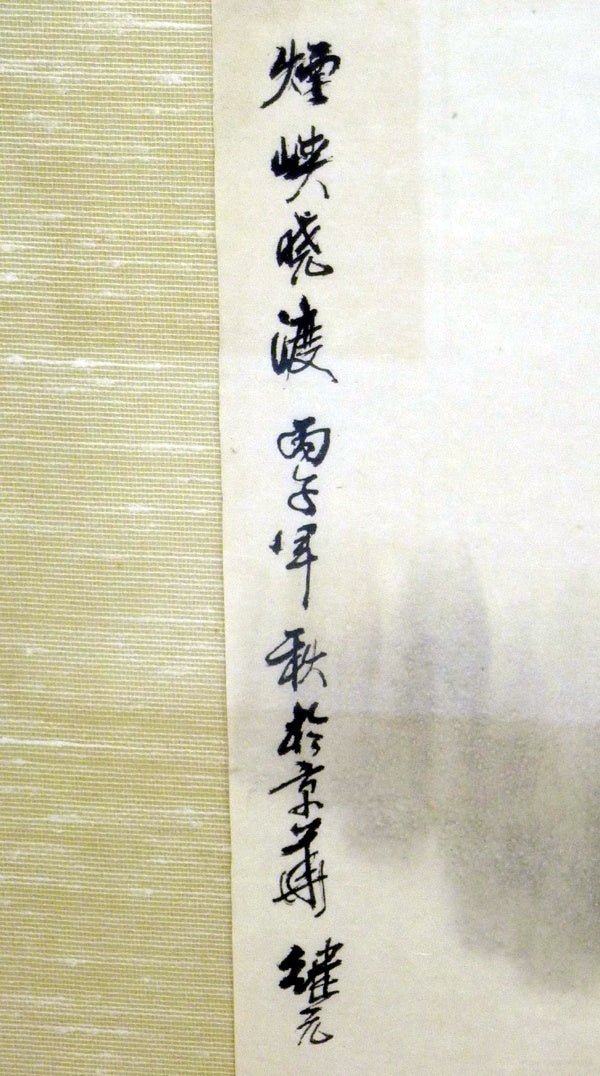 煙峡晓渡 丙午年秋於京華 継元